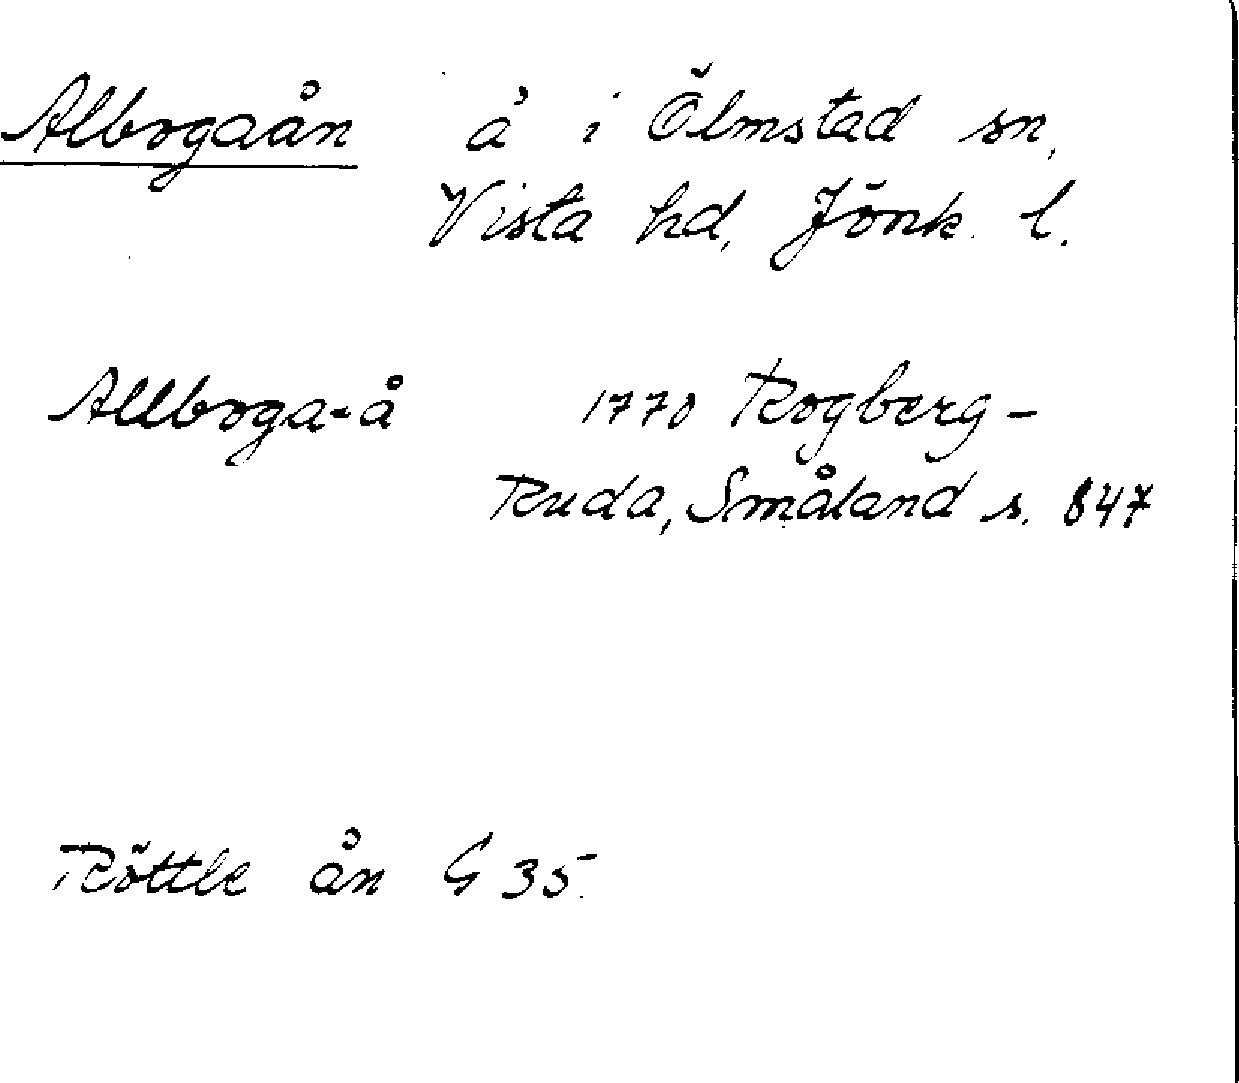 Albogaån å i Ölmstad sn,
Vista hd, Jönk. l.
Allboga-å 1770 Rogberg-
Ruda, Småland s. 847
Röttle ån G 35.